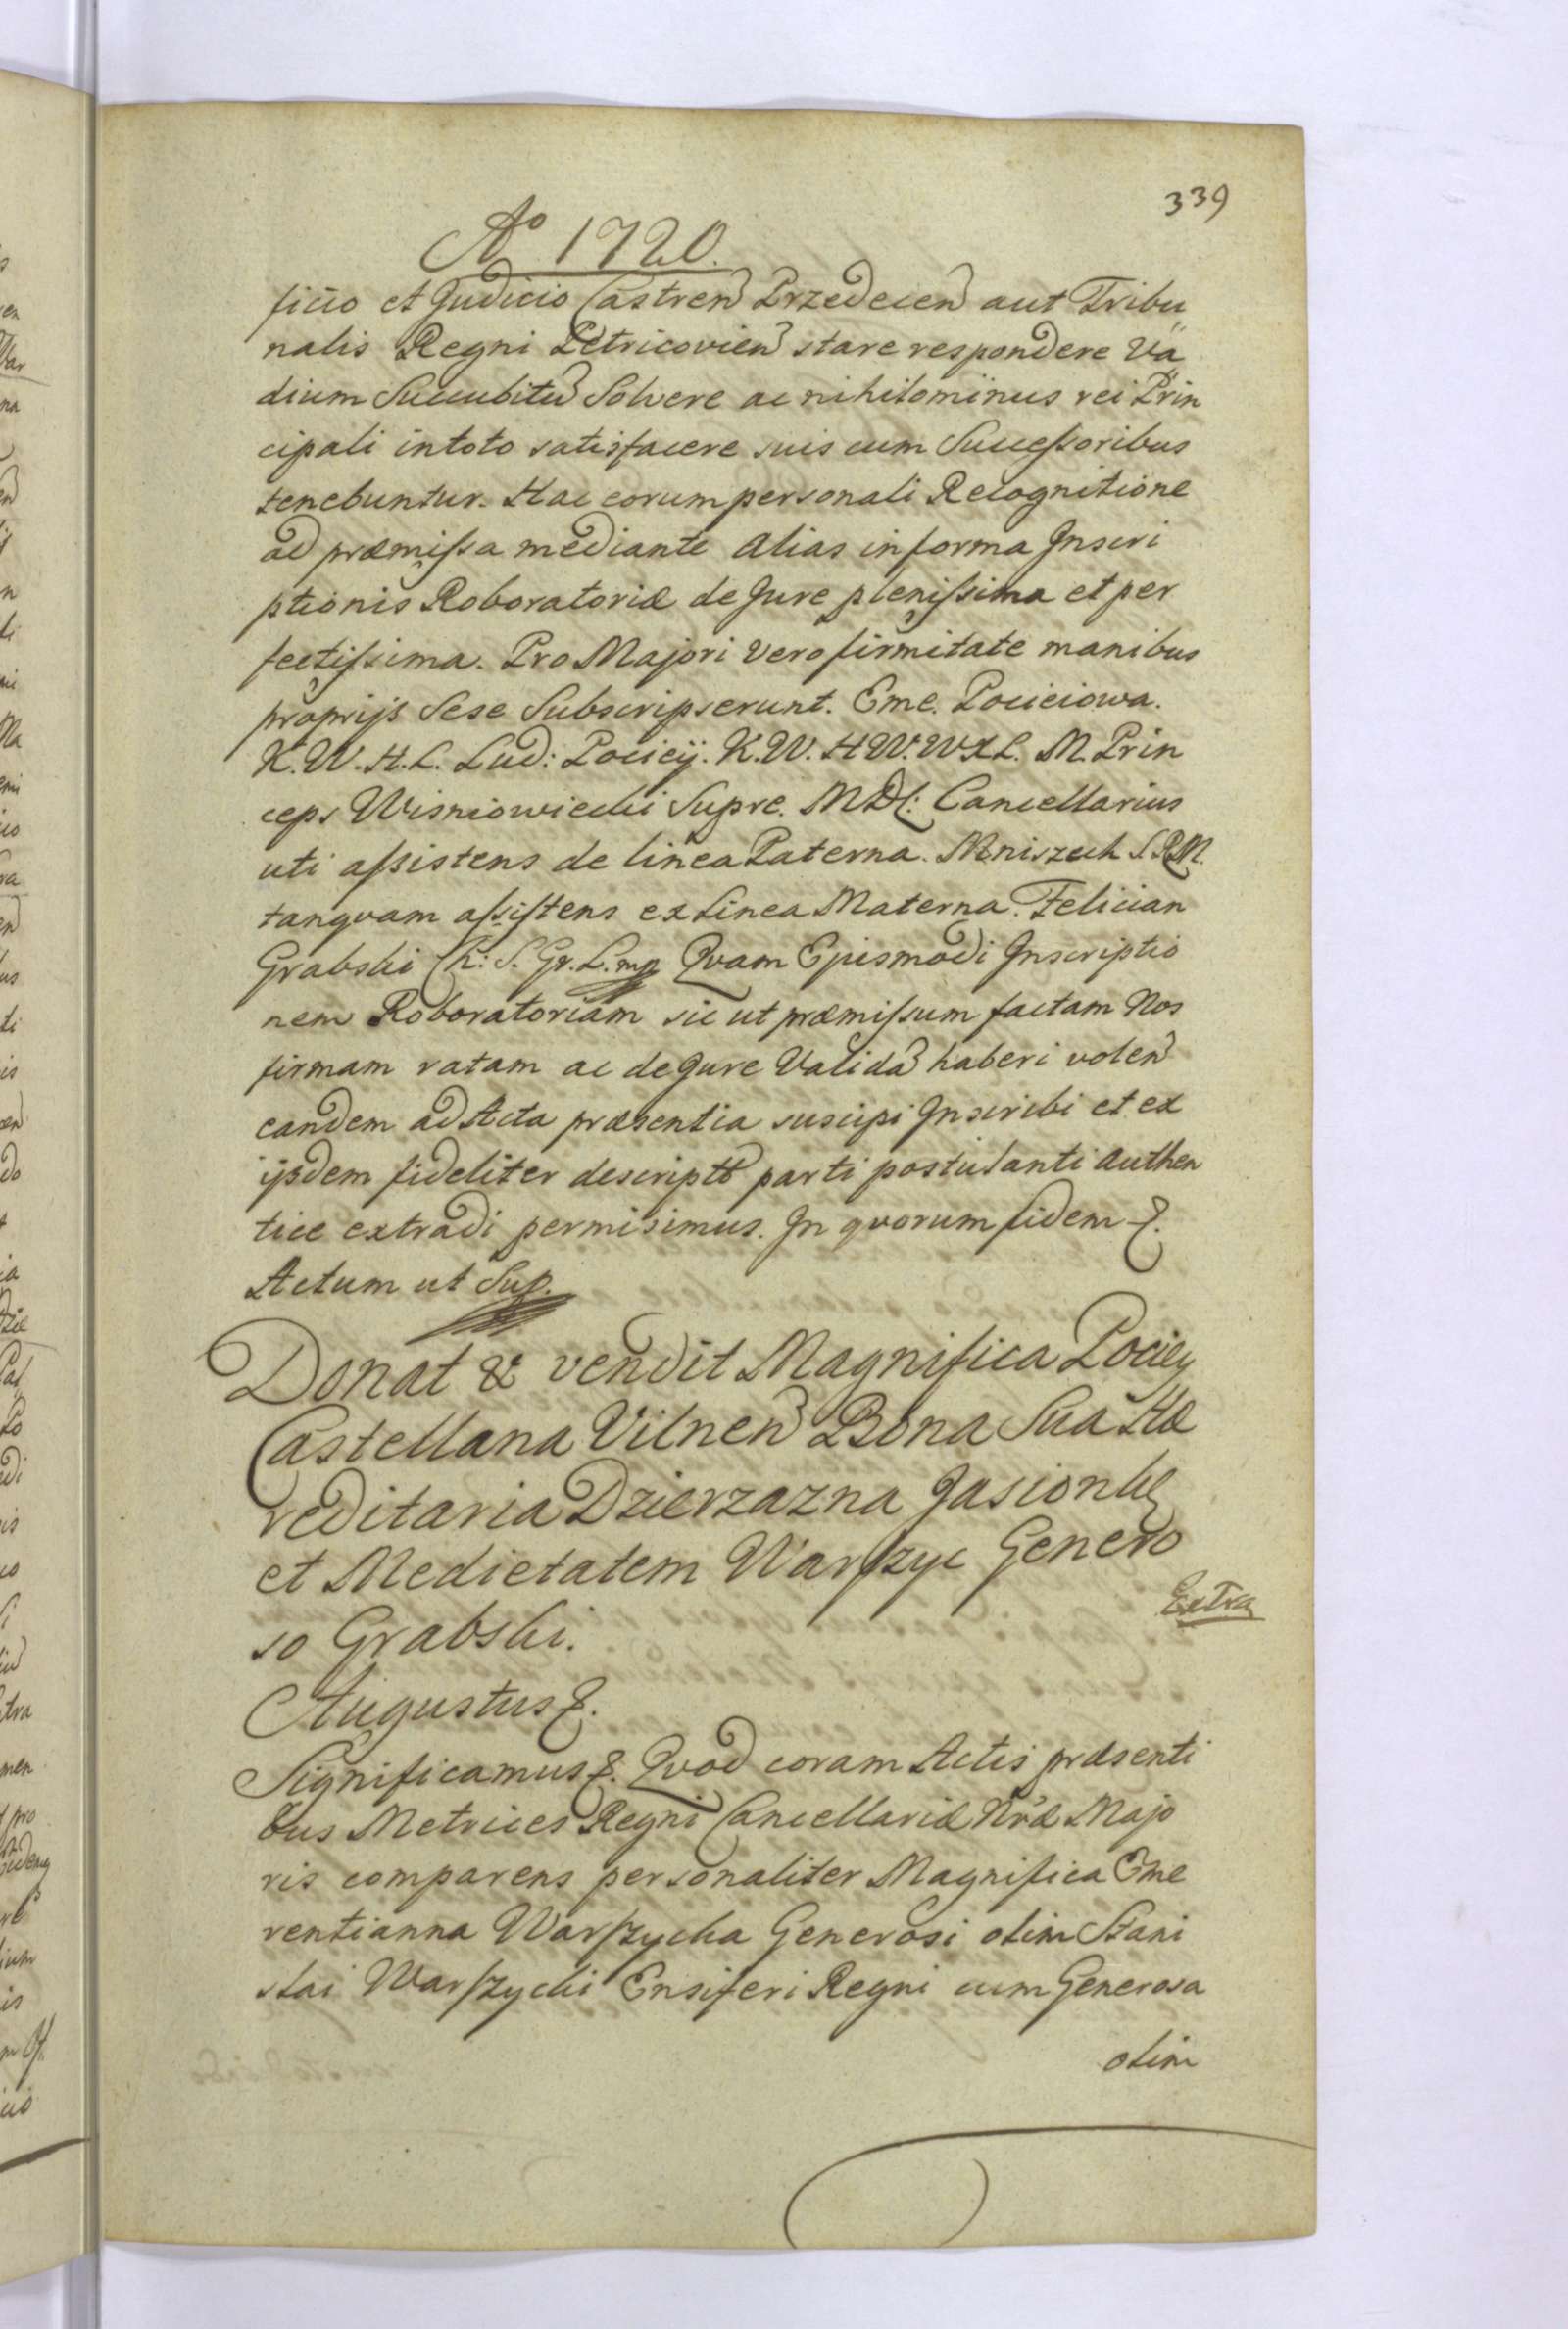 339
Aº 1720.
ficio et Judicio Castren Przedecen aut Tribu
nalis Regni Petricovien stare respondere Va
dium Succubitu Solvere ac nihilominus rei Prin
cipali intoto satisfacere suis cum Successoribus
tenebuntur. Hac eorum personali Recognitione
ad præmissa mediante alias in forma Inscri
ptionis Roboratoriæ de Jure plenissima et per
fectissima. Pro Majori vero firmitate manibus
proprijs Sese Subscripserunt. Eme. Pocieiowa.
K.W.H.L. Lud: Pociey. K.W. HW.WXL. M. Prin
ceps Wisniowiecki Supre. MDL: Cancellarius
uti assistens de linea Paterna. Mniszech S.R.M.
tanqvam assistens ex Linea Materna. Felician
Grabski Ch: S. Gr. L. mp Qvam Ejusmodi Inscriptio
nem Roboratoriam sic ut præmissum factam Nos
firmam ratam ac de Jure Valida haberi volen
eandem ad Acta præsentia suscipi Inscribi et ex
ijsdem fideliter descripta parti postulanti Authen
tice extradi permisimus. In qvorum fidem &.
Actum ut Sup.
Donat & vendit Magnifica Pociey
Castellana Vilnen Bona Sua Hæ
reditaria Dzierzazna Jasionki
et Medietatem Warszyc Genero
so Grabski.
Extra
Augustus &.
Significamus &. Qvod coram Actis præsenti
bus Metrices Regni Cancellariæ Nræ Majo
ris comparens personaliter Magnifica Eme
rentianna Warszycka Generosi olim Stani
slai Warszycki Ensiferi Regni cum Generosa
olim